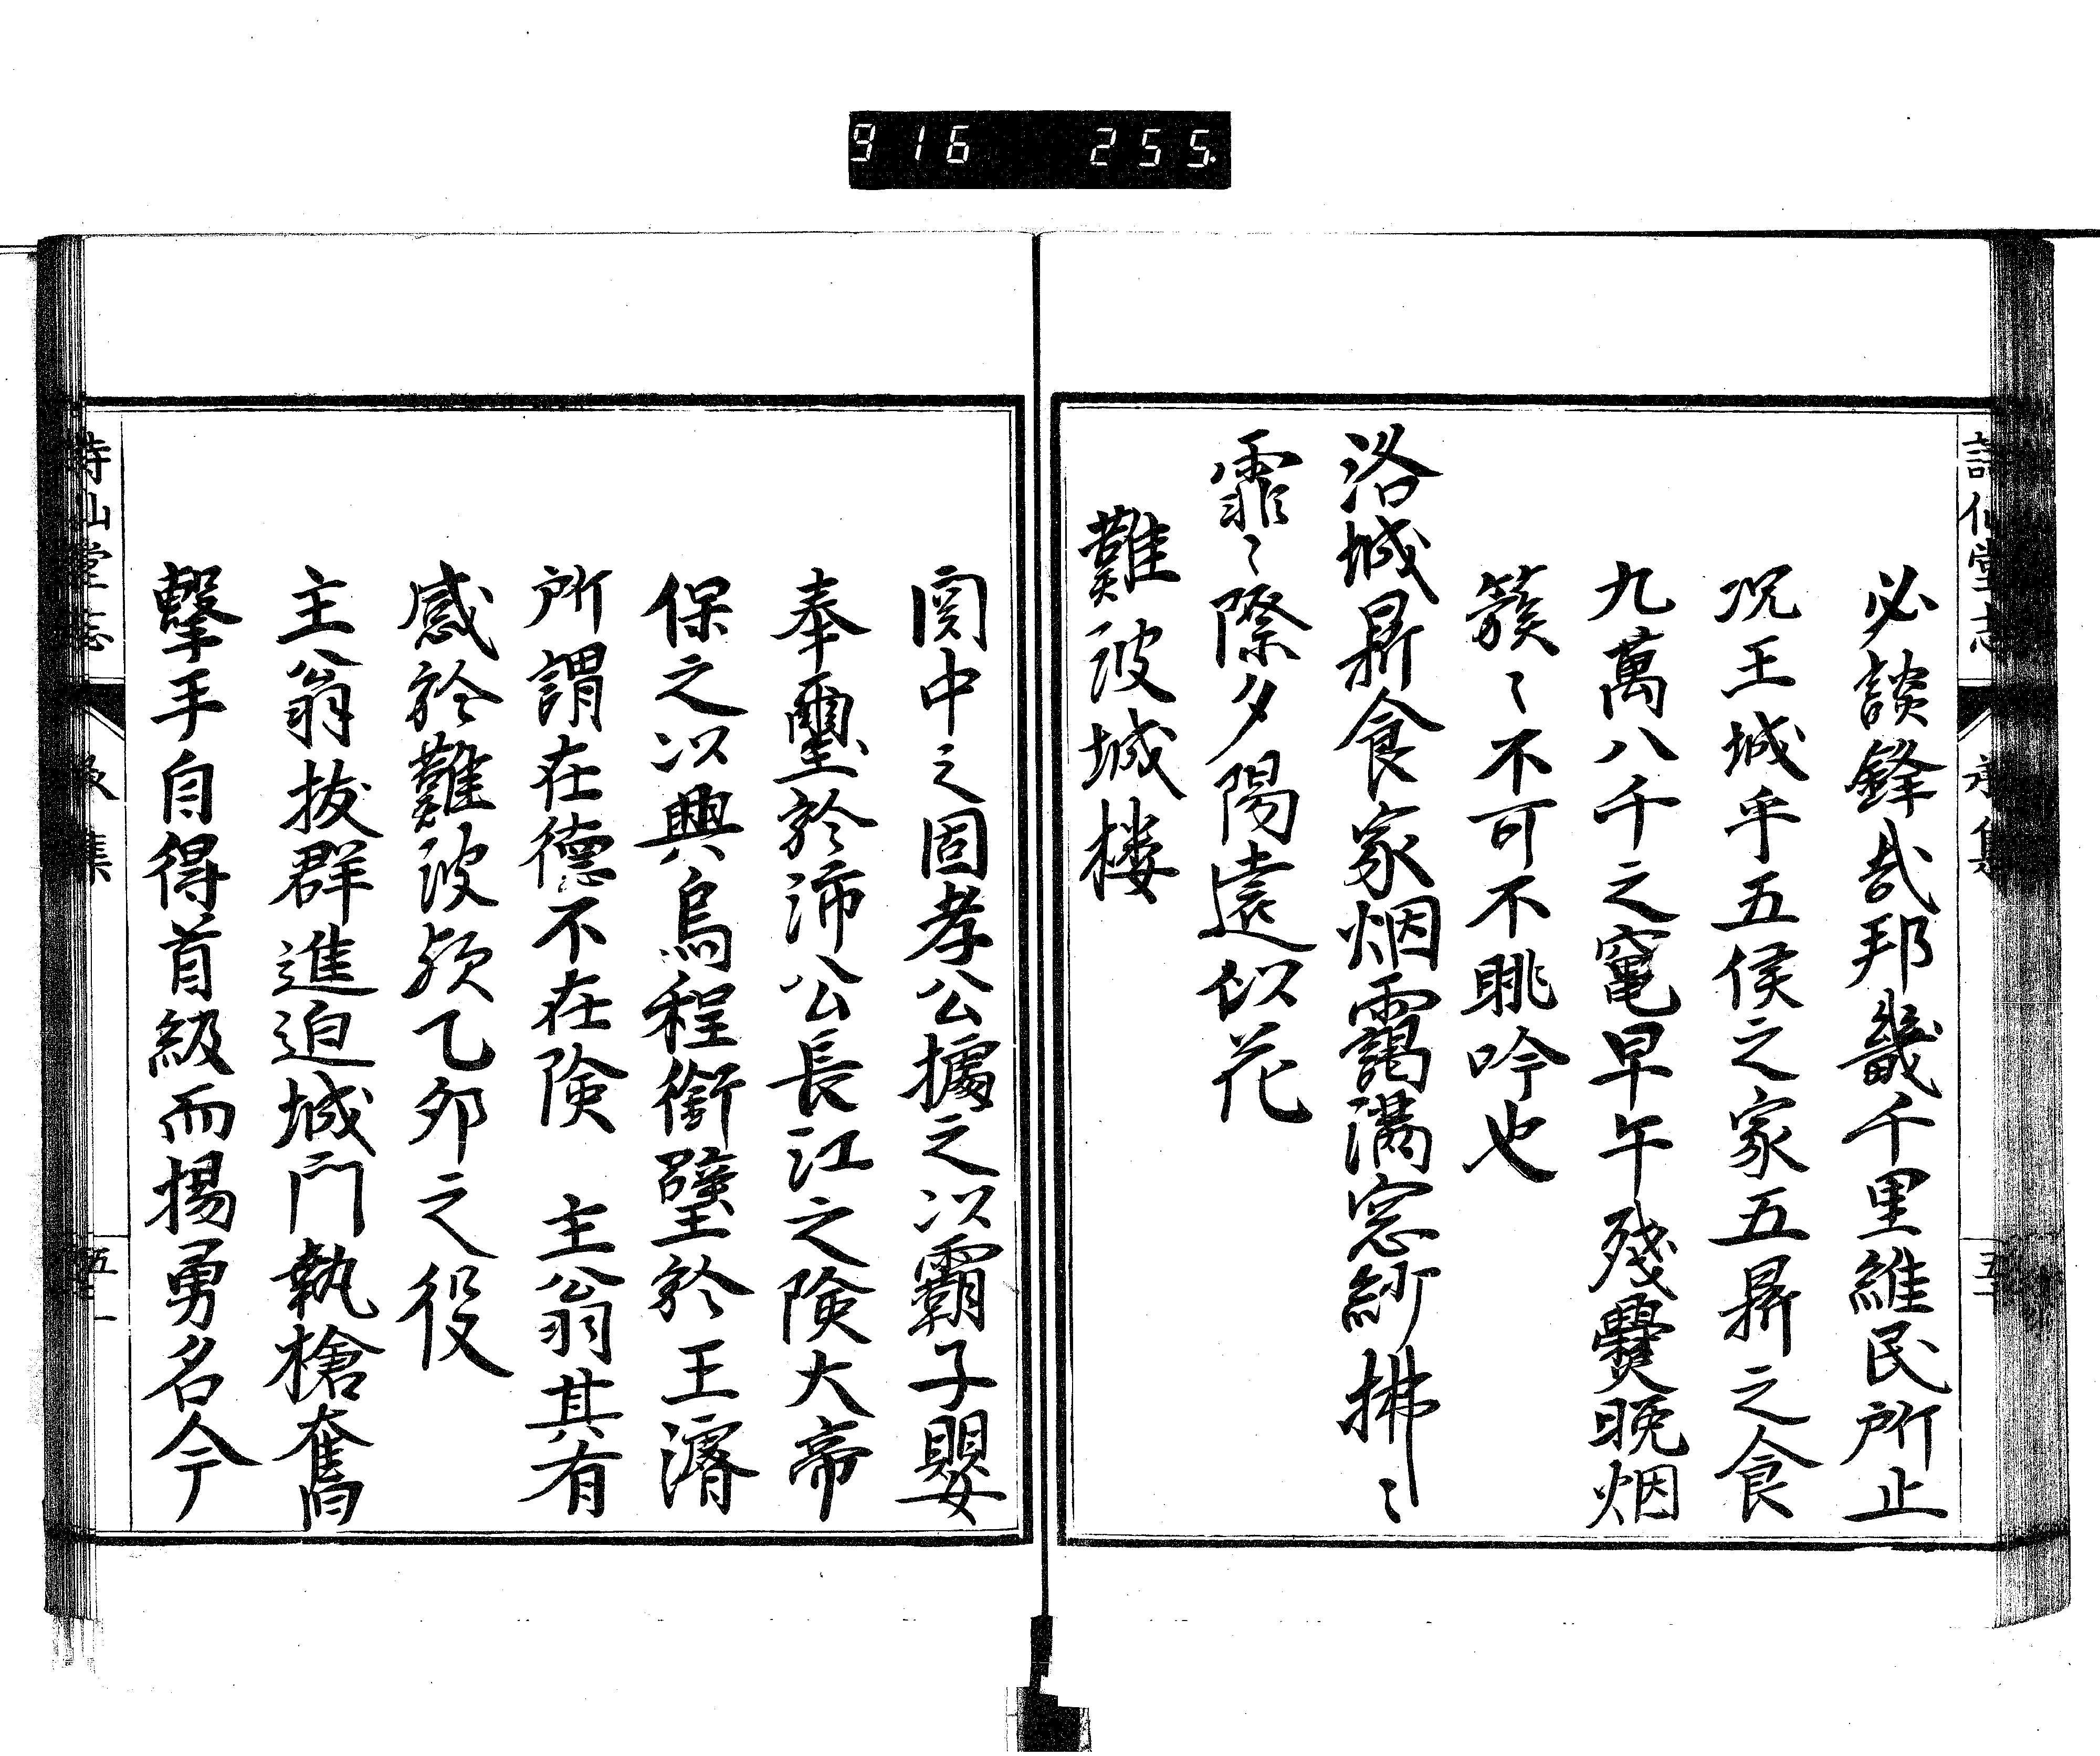 916 255
必談鋒哉邦畿千里維民所止
况王城乎五侯之家五鼎之食
九萬八千之竃早午殘爨晚烟
簇〻不可不眺吟也
洛城鼎食家烟靄満窓紗拂〻
霏〻際夕陽遠似花
難波城楼
関中之固孝公據之以霸子嬰
奉璽於沛公長江之険大帝
保之以興烏程銜璧於王濬
所謂在德不在険　主翁其有
感於難波欤乙夘之役
主翁抜群進迫城門執槍奮
擊手自得首級而揚勇名今